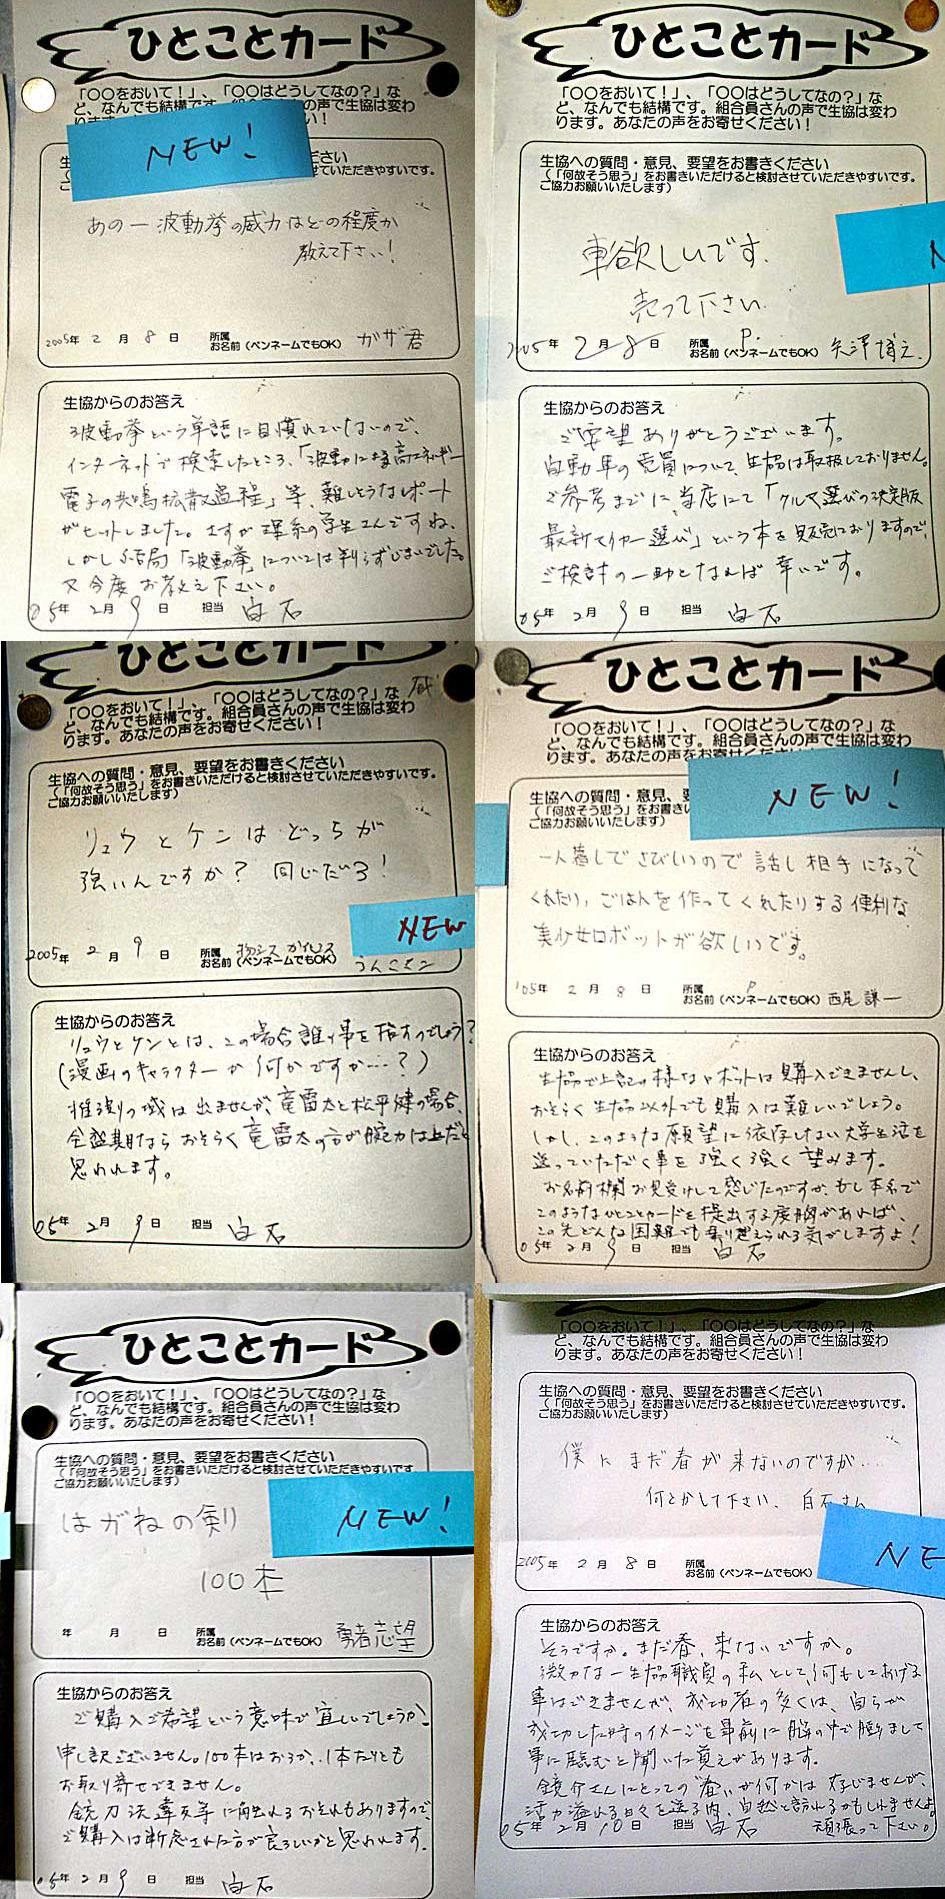 ひとことカード
「〇〇をおいて！」、「〇〇はどうしてなの？」な
ど、なんでも結構です。組合員さんの声で生協は変わ
ります。あなたの声をお寄せください！
NEW!
ださい
ていただきやすいです。
あのー波動拳の威力はどの程度か
教えて下さい！
2005年 2月 8日 所属
お名前（ペンネームでもOK） ガザ君
生協からのお答え
波動拳という単語に目慣れていないので、
インターネットで検索したところ、「波動による高エネルギー
電子の共鳴拡散過程」等、難しそうなレポート
がヒットしました。さすが理系の学生さんですね、
しかし結局「波動拳」については判らずじまいでした。
又今度お教え下さい。
05年 2月 9日 担当 白石
ひとことカード
「〇〇をおいて！」、「〇〇はどうしてなの？」な
ど、なんでも結構です。組合員さんの声で生協は変わ
ります。あなたの声をお寄せください！
生協への質問・意見、要望をお書きください
（「何故そう思う」をお書きいただけると検討させていただきやすいです。
ご協力お願いいたします）
車欲しいです。
売って下さい
2005年 2月 8日 所属 P.
お名前（ペンネームでもOK） 矢澤博之
生協からのお答え
ご要望ありがとうございます。
自動車の売買について、生協は取扱しておりません。
ご参考までに、当店にて「クルマ選びの決定版
最新マイカー選び」という本を販売しておりますので、
ご検討の一助となれば幸いです。
05年 2月 9日 担当 白石
ひとことカード
「〇〇をおいて！」、「〇〇はどうしてなの？」な
ど、なんでも結構です。組合員さんの声で生協は変わ
ります。あなたの声をお寄せください！
生協への質問・意見、要望をお書きください
（「何故そう思う」をお書きいただけると検討させていただきやすいです。
ご協力お願いいたします）
リュウとケンはどっちが
強いんですか？ 同じだろ！
NEW
2005年 2月 9日 所属
お名前（ペンネームでもOK）
生協からのお答え
リュウとケンとは、この場合誰の事を指すのでしょう？
（漫画のキャラクターか何かですか…？）
推測の域は出ませんが、竜雷太と松平健の場合、
全盛期ならおそらく竜雷太の方が腕力は上だと
思われます。
05年 2月 9日 担当 白石
ひとことカード
「〇〇をおいて！」、「〇〇はどうしてなの？」な
ど、なんでも結構です。組合員さんの声で生協は変わ
ります。あなたの声をお寄せください！
生協への質問・意見、要
（「何故そう思う」をお書き
ご協力お願いいたします）
NEW!
一人暮しでさびしいので話し相手になって
くれたり、ごはんを作ってくれたりする便利な
美少女ロボットが欲しいです。
'05年 2月 8日 所属 P
お名前（ペンネームでもOK） 西尾謙一
生協からのお答え
生協で上記の様なロボットは購入できませんし、
おそらく生協以外でも購入は難しいでしょう。
しかし、このような願望に依存しない大学生活を
送っていただく事を強く強く望みます。
お名前欄お見受けして感じたのですが、もし本名で
このようなひとことカードを提出する度胸があれば、
この先どんな困難でも乗り越えられる気がしますよ！
05年 2月 9日 担当 白石
ひとことカード
「〇〇をおいて！」、「〇〇はどうしてなの？」な
ど、なんでも結構です。組合員さんの声で生協は変わ
ります。あなたの声をお寄せください！
生協への質問・意見、要望をお書きください
（「何故そう思う」をお書きいただけると検討させていただきやすいです
ご協力お願いいたします）
NEW!
はがねの剣
100本
年 月 日 所属
お名前（ペンネームでもOK） 勇者志望
生協からのお答え
ご購入ご希望という意味で宜しいでしょうか？
申し訳ございません。100本はおろか、1本たりとも
お取り寄せできません。
銃刀法違反等に触れるおそれもありますので、
ご購入は断念された方が良ろしいかと思われます。
05年 2月 9日 担当 白石
ど、なんでも結構です。組合員さんの声で生協は変わ
ります。あなたの声をお寄せください！
生協への質問・意見、要望をお書きください
（「何故そう思う」をお書きいただけると検討させていただきやすいです。
ご協力お願いいたします）
僕にまだ春が来ないのですが…
何とかして下さい、白石さん
2005年 2月 8日 所属
お名前（ペンネームでもOK）
NE
生協からのお答え
そうですか。まだ春、来ないですか。
微力な一生協職員の私として、何もしてあげる
事はできませんが、成功者の多くは、自らが
成功した時のイメージを事前に脳の中で膨らまして
事に臨むと聞いた覚えがあります。
鏡介さんにとっての"春"が何かは存じませんが、
活力溢れる日々を送る内、自然と訪れるかもしれませんよ。
頑張って下さい。
05年 2月 10日 担当 白石